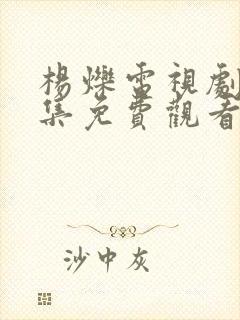 楊爍電視劇
集免費觀看
沙中灰